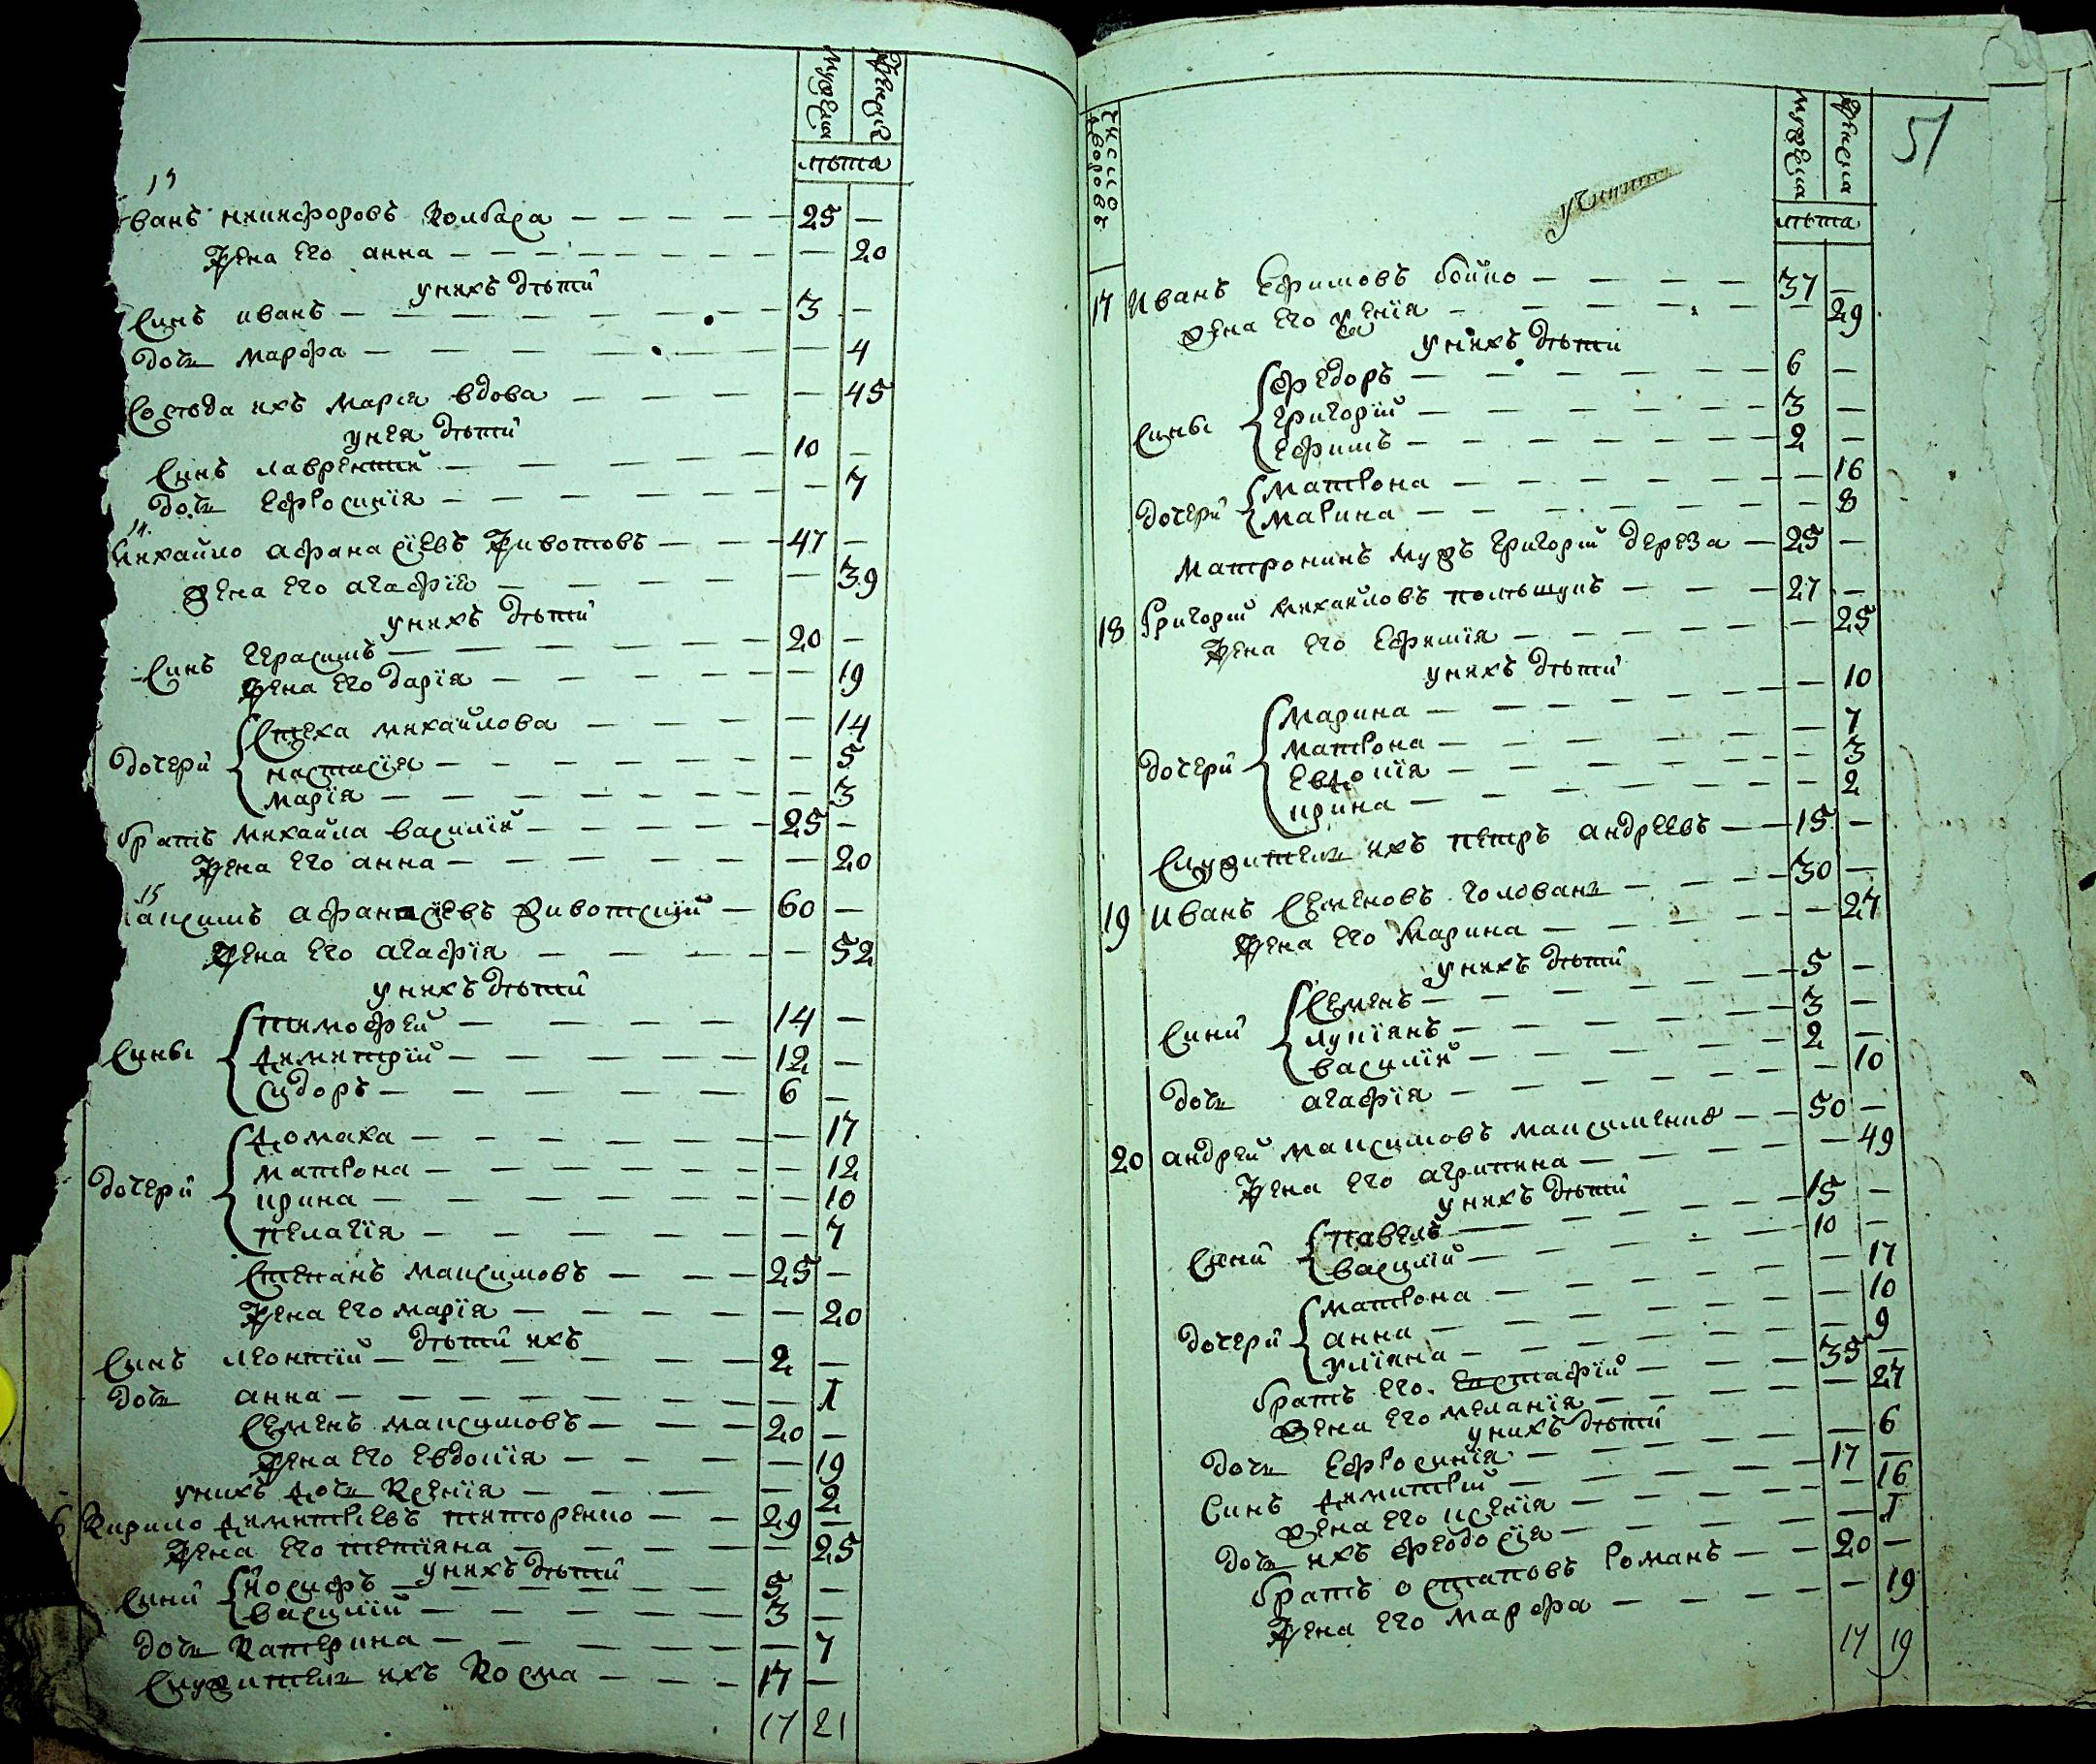 мужеска
женска
лѣта
13
ванъ никифоровъ Колбаса — 25 —
жена его анна — — 20
унихъ дѣти
Синъ иванъ — 3 —
дочь марфа — — 4
Соседа ихъ мария вдова — — 45
унея дѣти
Синъ лаврентий — 10 —
дочь ефросиния — — 7
14
Михайло афанасиевъ Животовъ — 47 —
жена его агафия — — 39
унихъ дѣти
Синъ герасимъ — 20 —
жена его дария — — 19
дочери
Стеха михайлова — — 14
настасия — — 5
мария — — 3
братъ михайла василий — 25 —
жена его анна — — 20
15
аксимъ афанасиевъ животский — 60 —
жена его агафия — — 52
унихъ дѣти
Сины
тимофей — 14 —
димитрий — 12 —
сидоръ — 6 —
дочери
домаха — — 17
матрона — — 12
ирина — — 10
пелагия — — 7
Степанъ максимовъ — 25 —
жена его мария — — 20
дѣти ихъ
Синъ леонтий — 2 —
дочь анна — — 1
Семенъ максимовъ — 20 —
жена его евдокия — — 19
унихъ дочь Ксения — — 2
6 Кирило димитриевъ титоренко — 29 —
жена его татияна — — 25
унихъ дѣти
Сини
йосифъ — 5 —
василий — 3 —
дочь Катерина — — 7
Служитель ихъ Косма — 17 —
17 21
51
число дворовъ
мужеска
женска
лѣта
17 Иванъ Ефимовъ бойко — 37 —
жена его ксения — — 29
унихъ дѣти
Сины
федоръ — 6 —
григорий — 3 —
ефимъ — 2 —
дочери
матрона — — 16
марина — — 8
матронинъ мужъ григорий дереза — 25 —
18 Григорий михайловъ — 27 —
жена его Ефимия — — 25
унихъ дѣти
дочери
марина — — 10
матрона — — 7
евдокия — — 3
ирина — — 2
Служитель ихъ петръ андреевъ — 15 —
19 Иванъ Семеновъ головань — 30 —
жена его марина — — 27
унихъ дѣти
Сини
Семенъ — 5 —
лукиянъ — 3 —
василий — 2 —
дочь агафия — — 10
20 андрей максимовъ максименко — 50 —
жена его агрипина — — 49
унихъ дѣти
Сини
павелъ — 15 —
василий — 10 —
дочери
матрона — — 17
анна — — 10
улияна — — 9
братъ его Евстафий — 35 —
жена его мелания — — 27
унихъ дѣти
дочь Ефросиния — — 6
Синъ димитрий — 17 —
жена его ксения — — 16
дочь ихъ феодосия — — 1
братъ остаповъ романъ — 20 —
жена его марфа — — 19
17 19